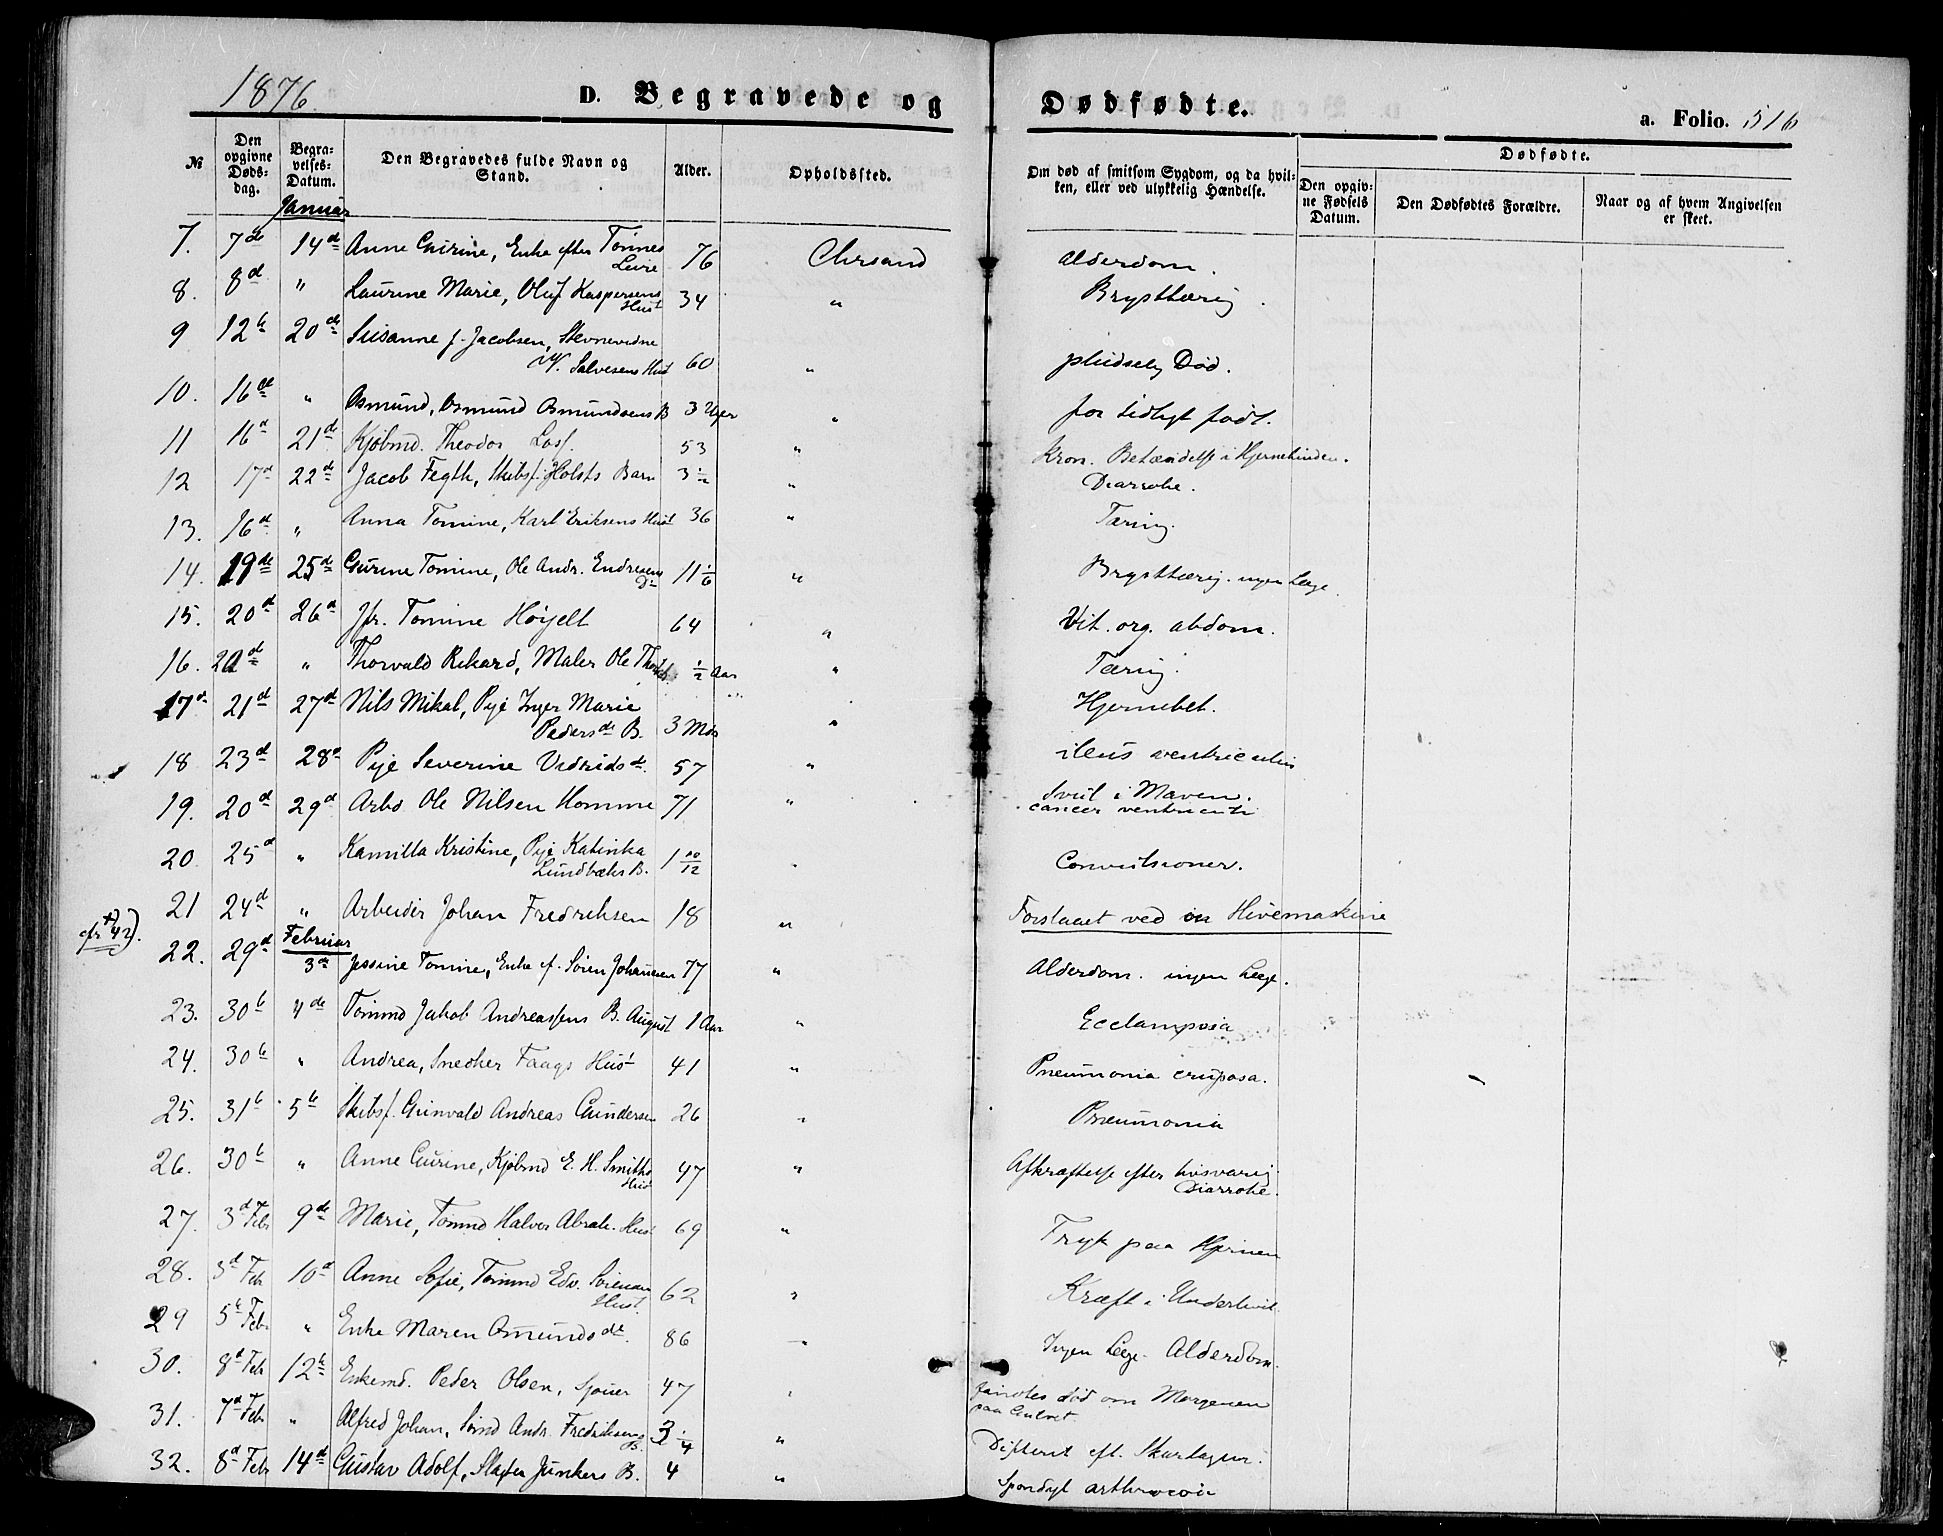 1876.
D. Begravede og Dødfødte.
a. Folio. 516
№ | Den opgivne Dødsdag. | Begravelses-Datum. | Den Begravedes fulde Navn og Stand. | Alder. | Opholdssted. | Om død af smitsom Sygdom, og da hvilken, eller ved ulykkelig Hændelse. | Dødfødte. | Den opgivne Fødsels Datum. | Den Dødfødtes Forældre. | Naar og af hvem Angivelsen er skeet.
Januar
7. 7de 14de Anne Gurine, Enke efter Tønnes 76 Chrsand Alderdom.
8. 8d " Laurine Marie, Oluf Kaspersens Hust 34 " Brysttæring.
9 12te 20de Susanne f. Jacobsen, Stevnevidne
N. Salvesens Hust 60 " pludselig Død.
10. 16de " Osmund, Osmund Osmundsens B 3 Uger " for tidligt født.
11 16d 21de Kjøbmd. Theodor 53 " Kron. Betændelse i Hjernehinden.
12 17d 22de Jacob Fegth, Skibsf. Holsts Barn 3 1/2 " Diarrohe.
13. 16d " Anna Tomine, Karl Eriksens Hust 36 " Tæring.
14. 19de 25de Gurine Tomine, Ole Andr. Endresens D 11 1/6 " Brysttærig. ingen Læge.
15. 20d 26d Jfr. Tomine Høyelt 64 " Vit. org. abdom.
16. " Thorvald Rikard, Maler Ole 1/2 Aar " Tæring.
17. 21d 27d Nils Mikal, Pige Inger Marie
Pedersdt B. 3 Mdr " Hjernebet.
18 23d 28d Pige Severine 57 " ileus ventriculus
19. 20d 29d Arbd Ole Nilsen Homme 71 " i Maven.
cancer ventriculi
20 25d " Kamilla Kristine, Pige Katinka
Lundbæks B. 1 10/12 " Convulsioner.
21 24d " Arbeider Johan Fredriksen 18 " Forslaaet ved en Hivemaskine
cfr 42).
Februar
22. 29d 3de Jessine Tomine, Enke ef. Søren Johannesen 77 " Alderdom. ingen Læge.
23. 30te 4de Tømmd Jakob Andreassens B. August 1 Aar " Ecclampsia
24. 30te " Andrea, Snedker Faags Hust 41 " Pneumonia cruposa.
25. 31te 5te Skibsf. Gunvald Andreas Gundersen 26 " Pneumonia
26. 30te " Anne Gurine, Kjøbmd E. H. Smiths Hust 47 " Afkræftelse efter
Diarrohe.
27. 3d Febr 9de Marie, Tømmd Halvor Abrah. Hust 69 " Tryk paa Hjernen
28. 3d Feb 10d Anne Sofie, Tømmd Edv. Sørensen
Hust. 62 " Kræft i Underlivet
29 5te Febr " Enke Maren Omundsdt. 86 " Ingen Læge. Alderdom.
30. 8d Feb 12te Enkemd. Peder Olsen, Sjouer 47 " fandtes død om Morgenen
paa Gulvet.
31. 7d Feb " Alfred Johan, Sømd Andr. Fredriksens B. 3 1/4 " Difterit eft. Skarlagen.
32. 8d Febr 14de Gustav Adolf, Slagter Junkers B. 4 " Spondyl arthrocoie